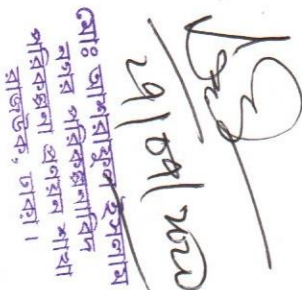 ২৭/০৭/২০২০
মোঃ আশরাফুল ইসলাম
নগর পরিকল্পনাবিদ
পরিকল্পনা প্রণয়ন শাখা
রাজউক, ঢাকা।